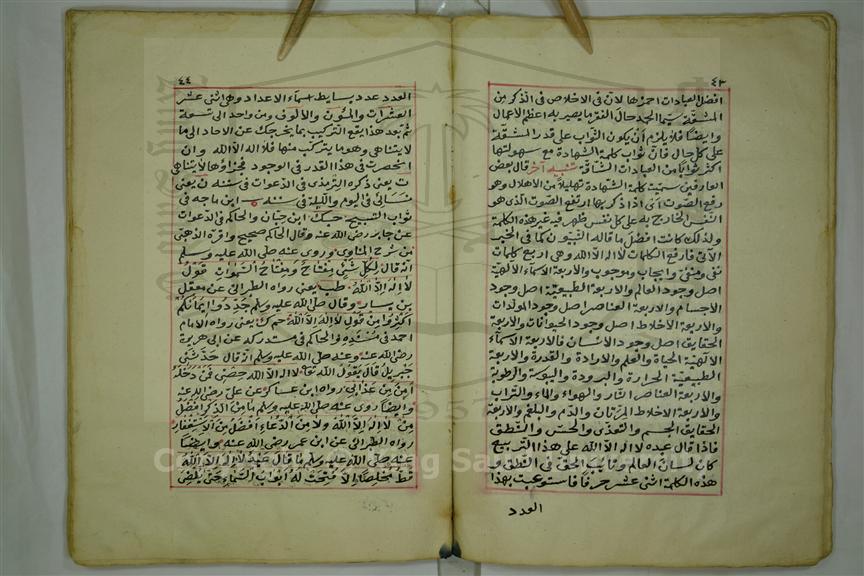 ٤٣
افضل العبادات احمزها لان فى الاخلاص فى الذكر من
المشقة سيما الحمد حال الفقر ما يصير به اعظم الاعمال
وايضا فلا يلزم أن يكون الثواب على قدر المشقة
على كل حال فان ثواب كلمة الشهادة مع سهولتها
اكثر ثوابا من العبادات الشاقة تنبيه آخر قال بعض
العارفين سميت كلمة الشهادة تهليلا من الاهلال وهو
رفع الصوت أى اذا ذكر بها ارتفع الصوت الذى هو
النفس الخارج به على كل نفس ظهر فيه غير هذه الكلمة
ولذلك كانت افضل ما قاله النبيون كما فى الخبر
الآتى فارفع الكلمات لا اله الا الله وهى اربع كلمات
نفى ومنفى وايجاب وموجب والاربعة الاسماء الآلهية
اصل وجود العالم والاربعة الطبيعية اصل وجود
الاجسام والاربعة العناصر اصل وجود المولدات
والاربعة الاخلاط اصل وجود الحيوانات والاربعة
الحقايق اصل وجود الانسان فالاربعة الاسماء
الآلهية الحياة والعلم والارادة والقدرة والاربعة
الطبيعية الحرارة والبرودة واليبوسة والرطوبة
والاربعة العناصر النار والهواء والماء والتراب
والاربعة الاخلاط المرتان والدم والبلغم والاربعة
الحقايق الجسم والتغذى والحس والنطق
فاذا قال عبده لا اله الا الله على هذا التربيع
كان لسان العالم ونايب الحق فى النطق و
هذه الكلمة اثنى عشر حرفا فاستوعبت بهذا
العدد
٤٤
العدد عدد بسايط اسماء الاعداد وهى اثنى عشر
العشرات والمئون والالوف ومن واحد الى تسعة
ثم بعد هذا يقع التركيب بما يخرجك عن الآحاد الى ما
لا يتناهى وهو ما يتركب منها فلا اله الا الله وان
انحصرت فى هذا القدر فى الوجود فجزاؤها لا يتناهى
ت يعنى ذكره الترمذى فى الدعوات فى سننه ن يعنى
نسائى فى اليوم والليلة فى سننه ه ابن ماجه فى
ثواب التسبيح حبك ابن حبان والحاكم فى الدعوات
عن جابر رضى الله عنه وقال الحاكم صحيح واقره الذهبى
من شرح المناوى وروى عنه صلى الله عليه وسلم
انه قال لكل شئ مفتاح ومفتاح السموات قول
لا اله الا الله طب يعنى رواه الطبرانى عن معقل
بن يسار وقال صلى الله عليه وسلم جددوا ايمانكم
اكثروا من قول لا اله الا الله حم ك يعنى رواه الامام
احمد فى مسنده والحاكم فى مستدركه عن ابى هريرة
رضى الله عنه وعنه صلى الله عليه وسلم انه قال حدثنى
جبريل قال يقول الله تعا لا اله الا الله حصنى فمن دخله
امن من عذابى رواه ابن عساكر عن على رضى الله عنه
وايضا روى عنه صلى الله عليه وسلم ما من الذكر افضل
من لا اله الا الله ولا من الدعاء افضل من الاستغفار
رواه الطبرانى عن ابن عمر رضى الله عنه وايضا
عنه صلى الله عليه وسلم ما قال عبد لا اله الا الله
قط مخلصا الا فتحت له ابواب السماء حتى يفضى